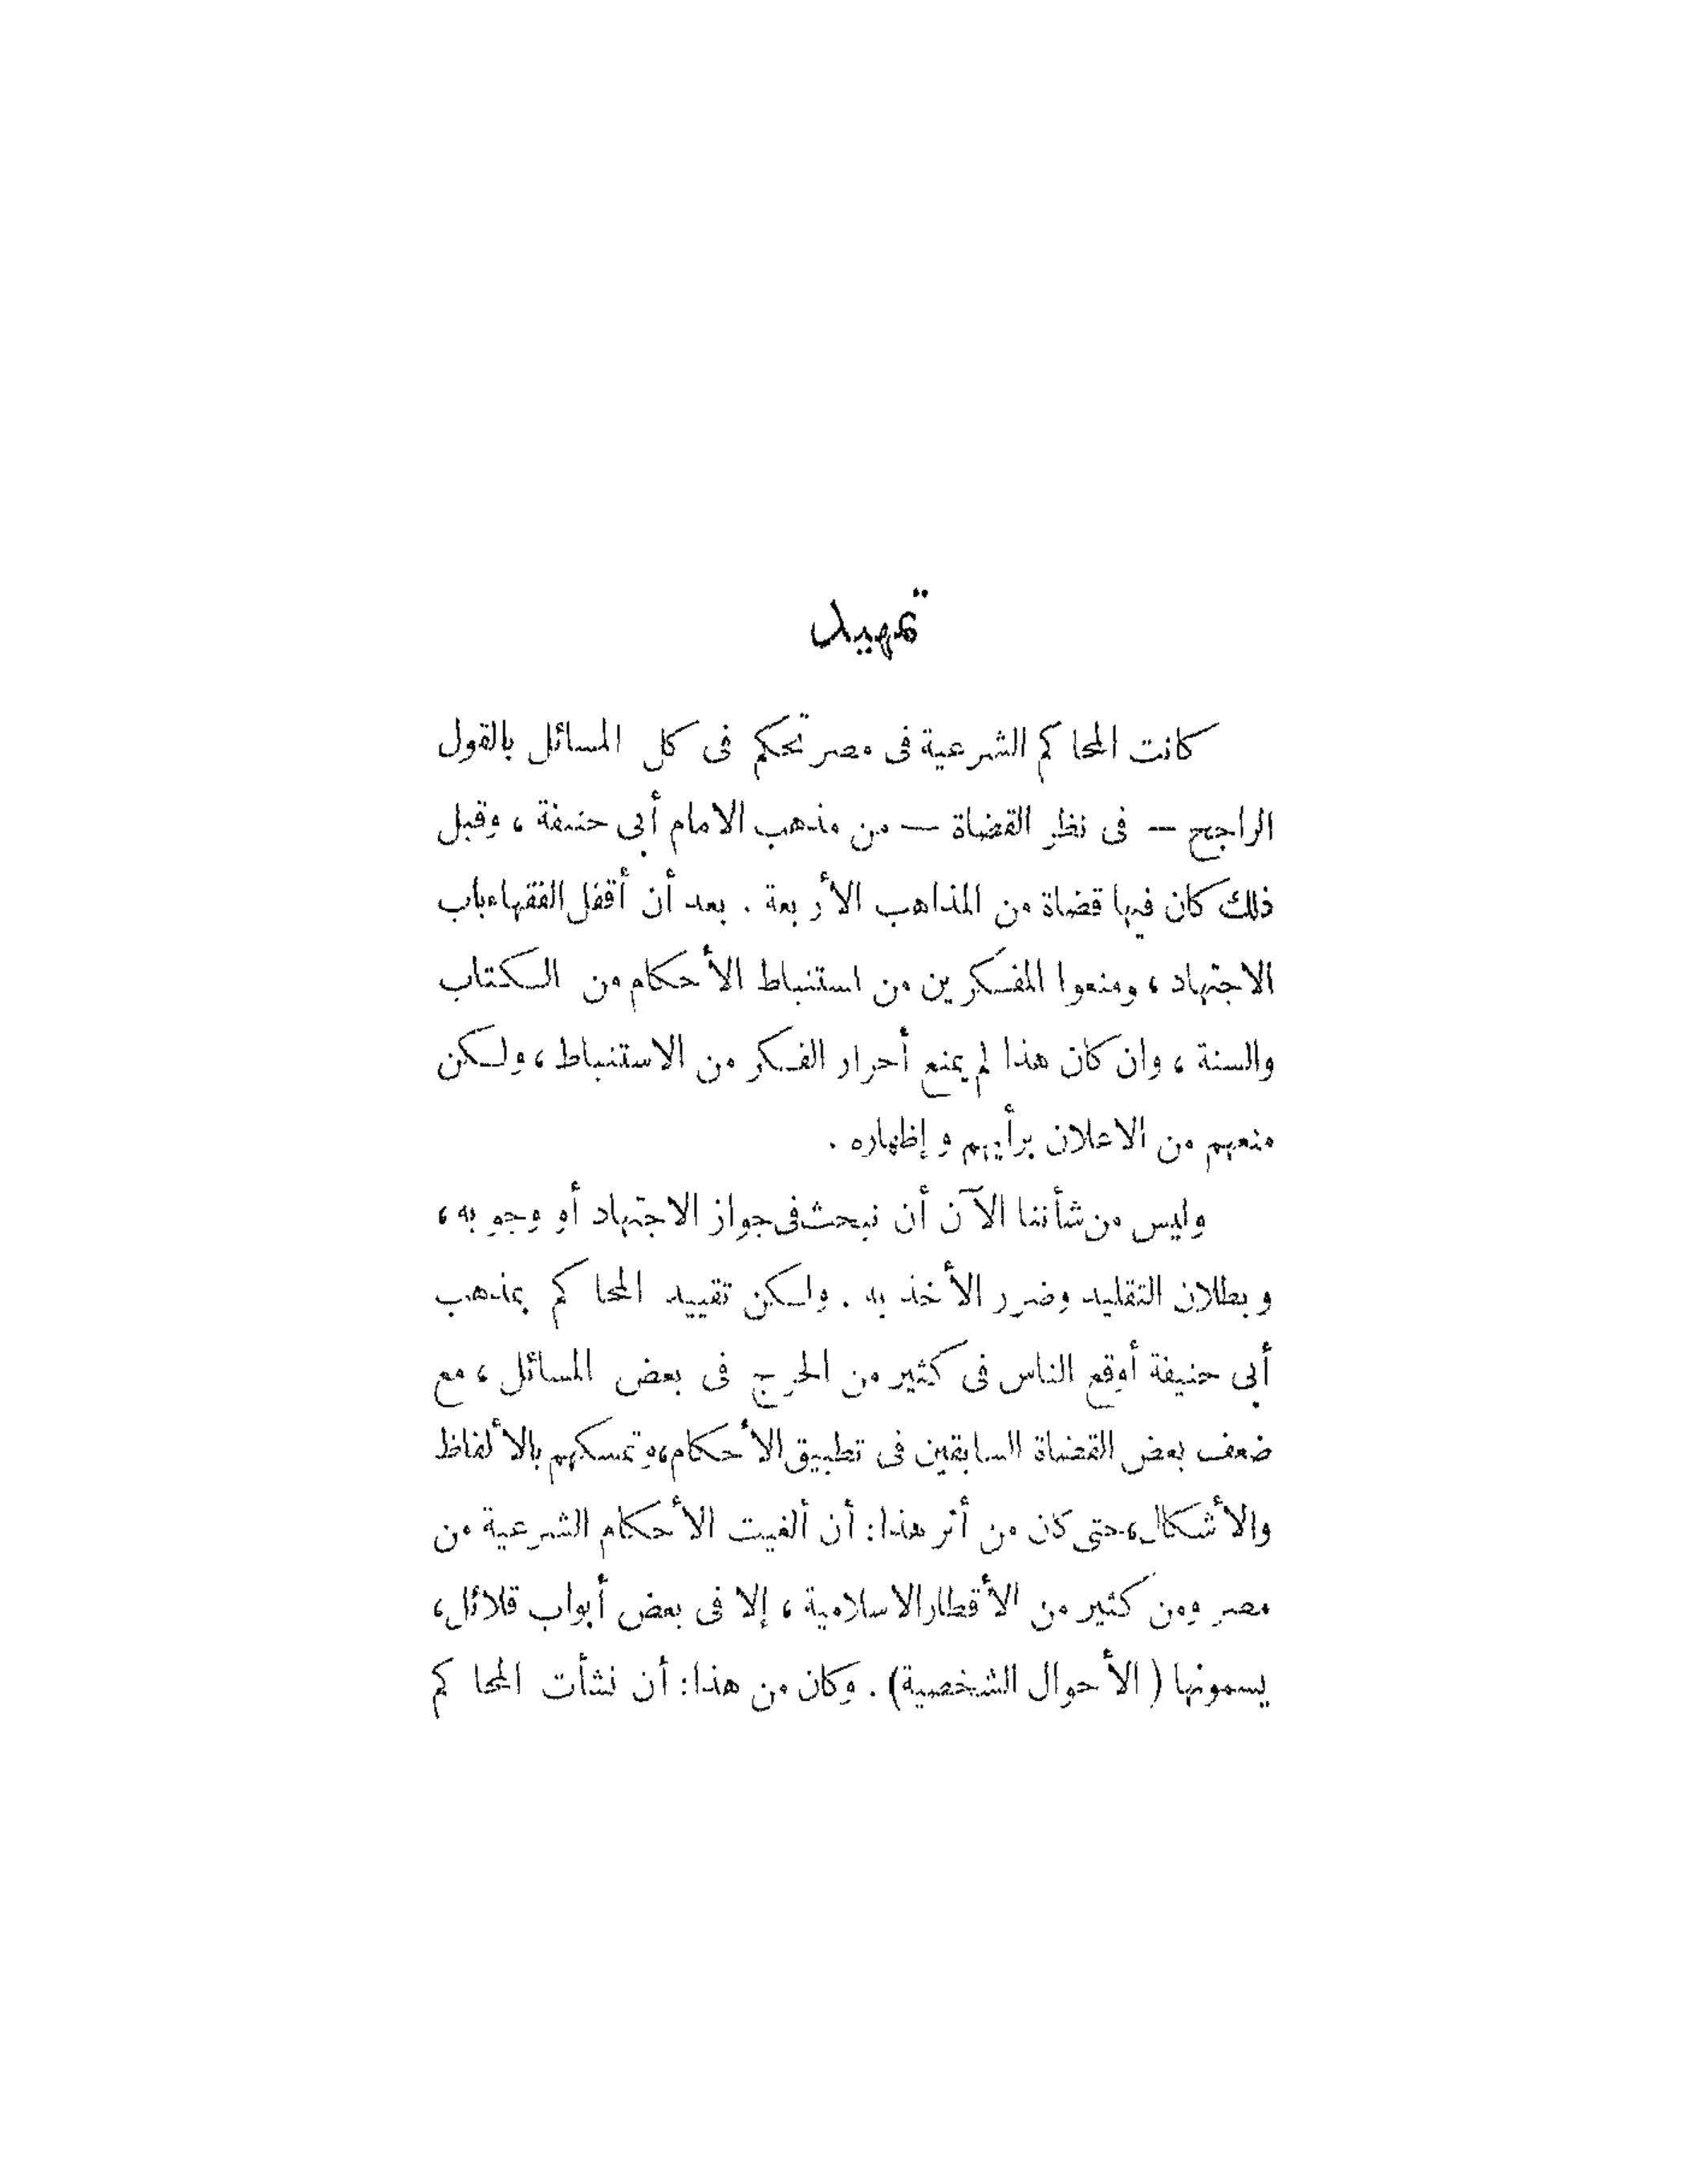 تمهيد
كانت المحاكم الشرعية فى مصر تحكم فى كل المسائل بالقول
الراجح — فى نظر القضاة — من مذهب الامام أبى حنيفة ، وقبل
ذلك كان فيها قضاة من المذاهب الأربعة . بعد أن أقفل الفقهاء باب
الاجتهاد ، ومنعوا المفكرين من استنباط الأحكام من الكتاب
والسنة ، وان كان هذا لم يمنع أحرار الفكر من الاستنباط ، ولكن
منعهم من الاعلان برأيهم و إظهاره .
وليس من شأننا الآن أن نبحث فى جواز الاجتهاد أو وجوبه ،
و بطلان التقليد وضرر الأخذ به . ولكن تقييد المحاكم بمذهب
أبى حنيفة أوقع الناس فى كثير من الحرج فى بعض المسائل ، مع
ضعف بعض القضاة السابقين فى تطبيق الأحكام، وتمسكهم بالألفاظ
والأشكال، حتى كان من أثر هذا: أن ألغيت الأحكام الشرعية من
مصر ومن كثير من الأقطار الاسلامية ، إلا فى بعض أبواب قلائل،
يسمونها ( الأحوال الشخصية) . وكان من هذا: أن نشأت المحاكم